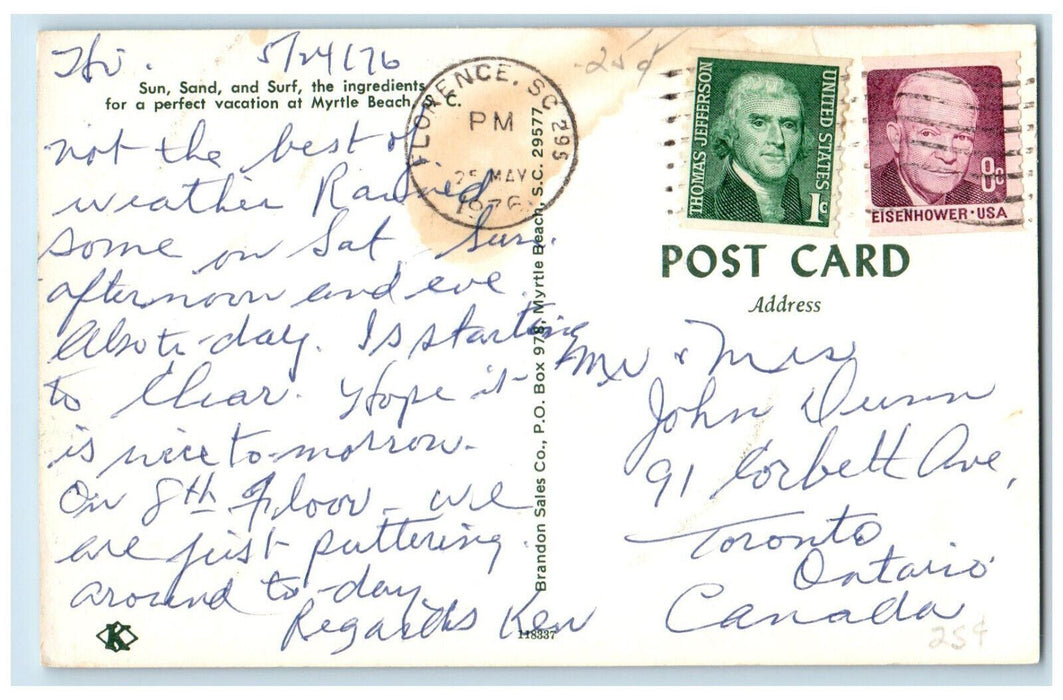 Hi. 5/24/76
Sun, Sand, and Surf, the ingredients
for a perfect vacation at Myrtle Beach, S. C.
not the best of
weather Rained
some on Sat, Sun.
afternoon and eve.
Also to-day. Is starting
to Clear. Hope it
is nice to-morrow.
On 8th Floor - we
are just puttering
around to-day
Regards Ken
K
118337
Brandon Sales Co., P.O. Box 978, Myrtle Beach, S.C. 29577
FLORENCE, SC 295
PM
25 MAY
1976
25¢
THOMAS JEFFERSON
UNITED STATES
1c
8c
EISENHOWER·USA
POST CARD
Address
Mr & Mrs
John Dunn
91 Corbett Ave,
Toronto
Ontario
Canada
25¢